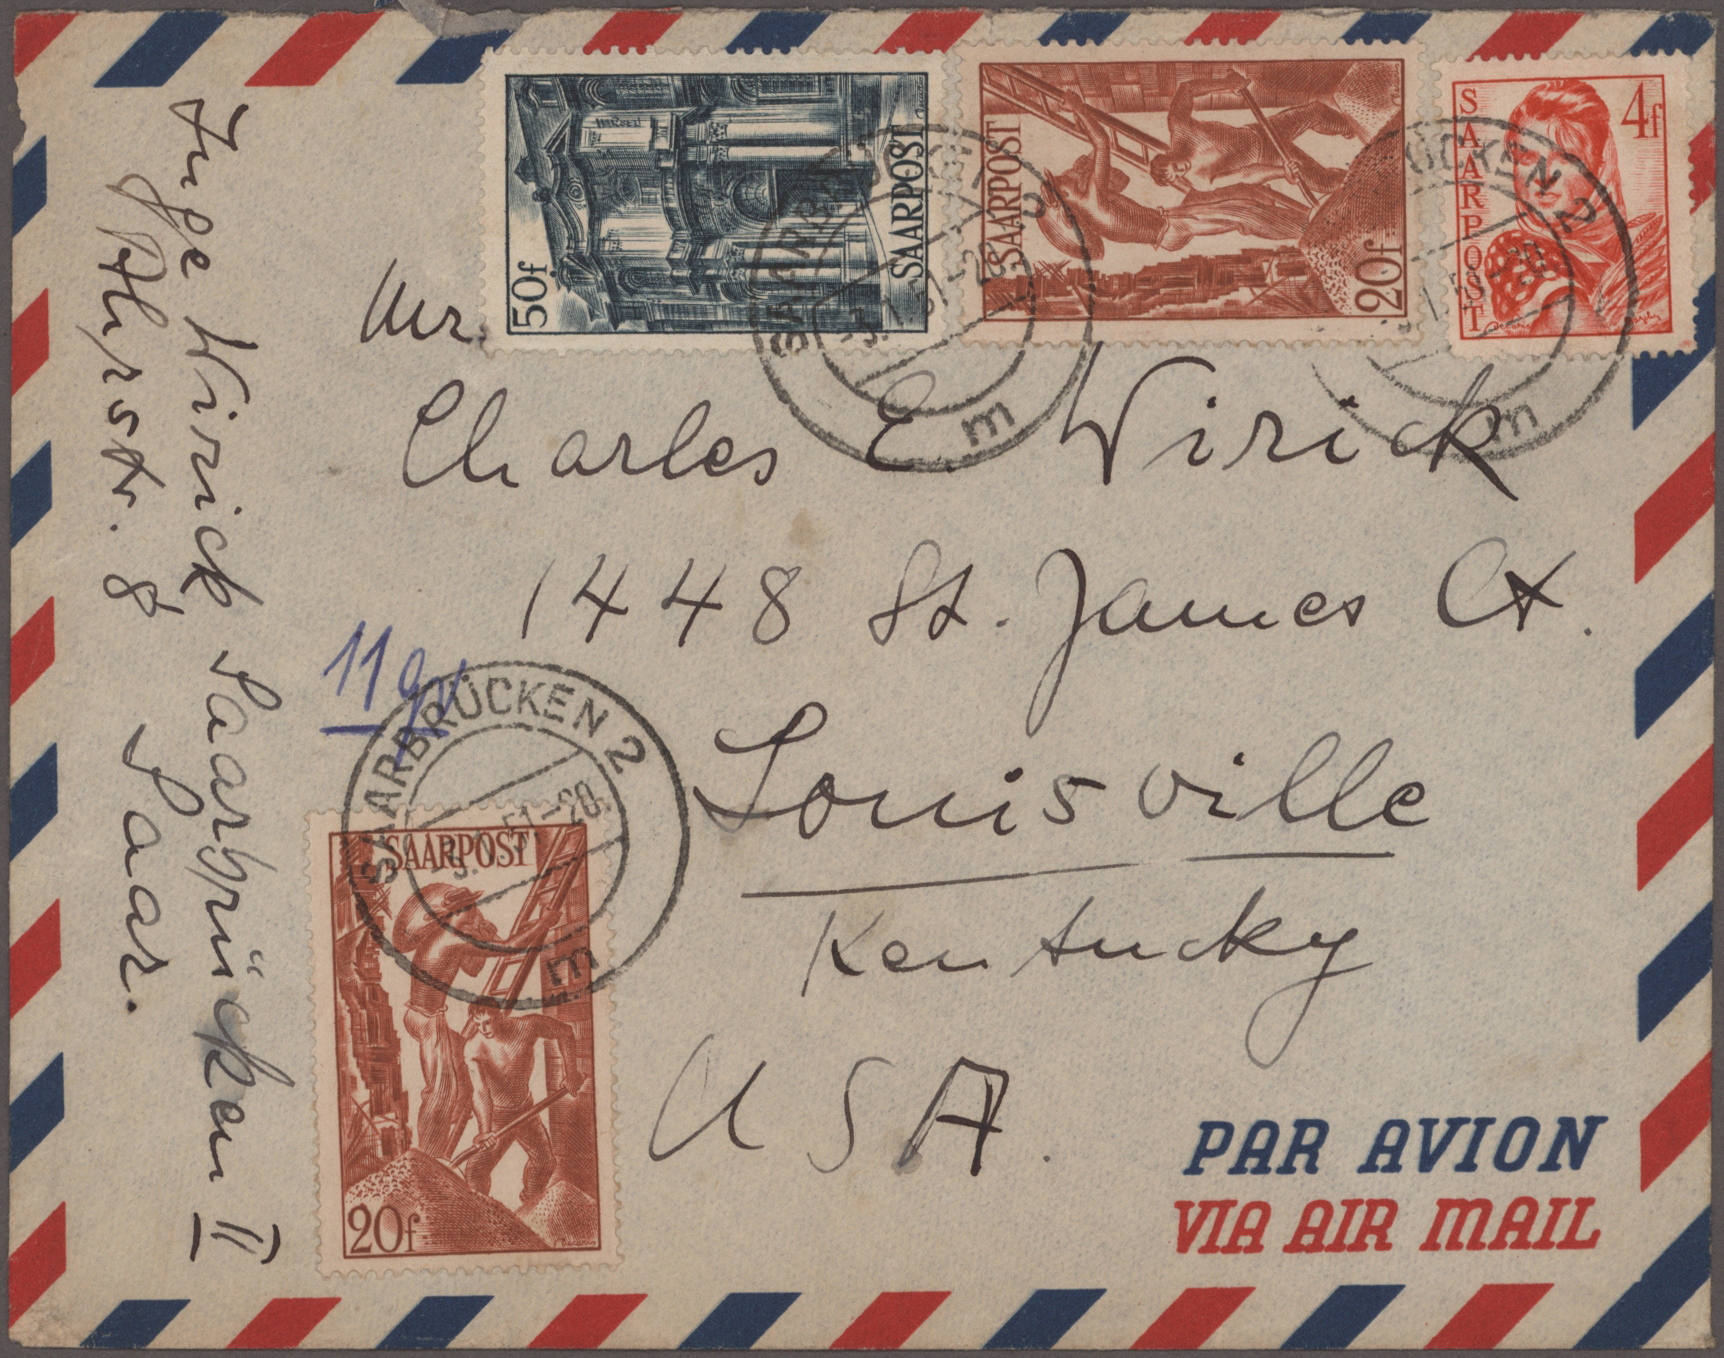 Inge Wirick Saarbrücken II
Ahrstr. 8
Saar.
50f
SAARPOST
SAARPOST
20f
4f
SAARPOST
SAARBRÜCKEN 2
m
BRÜCKEN 2
m
Mr.
Charles E. Wirick
1448 St. James Ct.
Louisville
Kentucky
USA.
11 gr
SAARBRÜCKEN 2
51-20
m
SAARPOST
20f
PAR AVION
VIA AIR MAIL